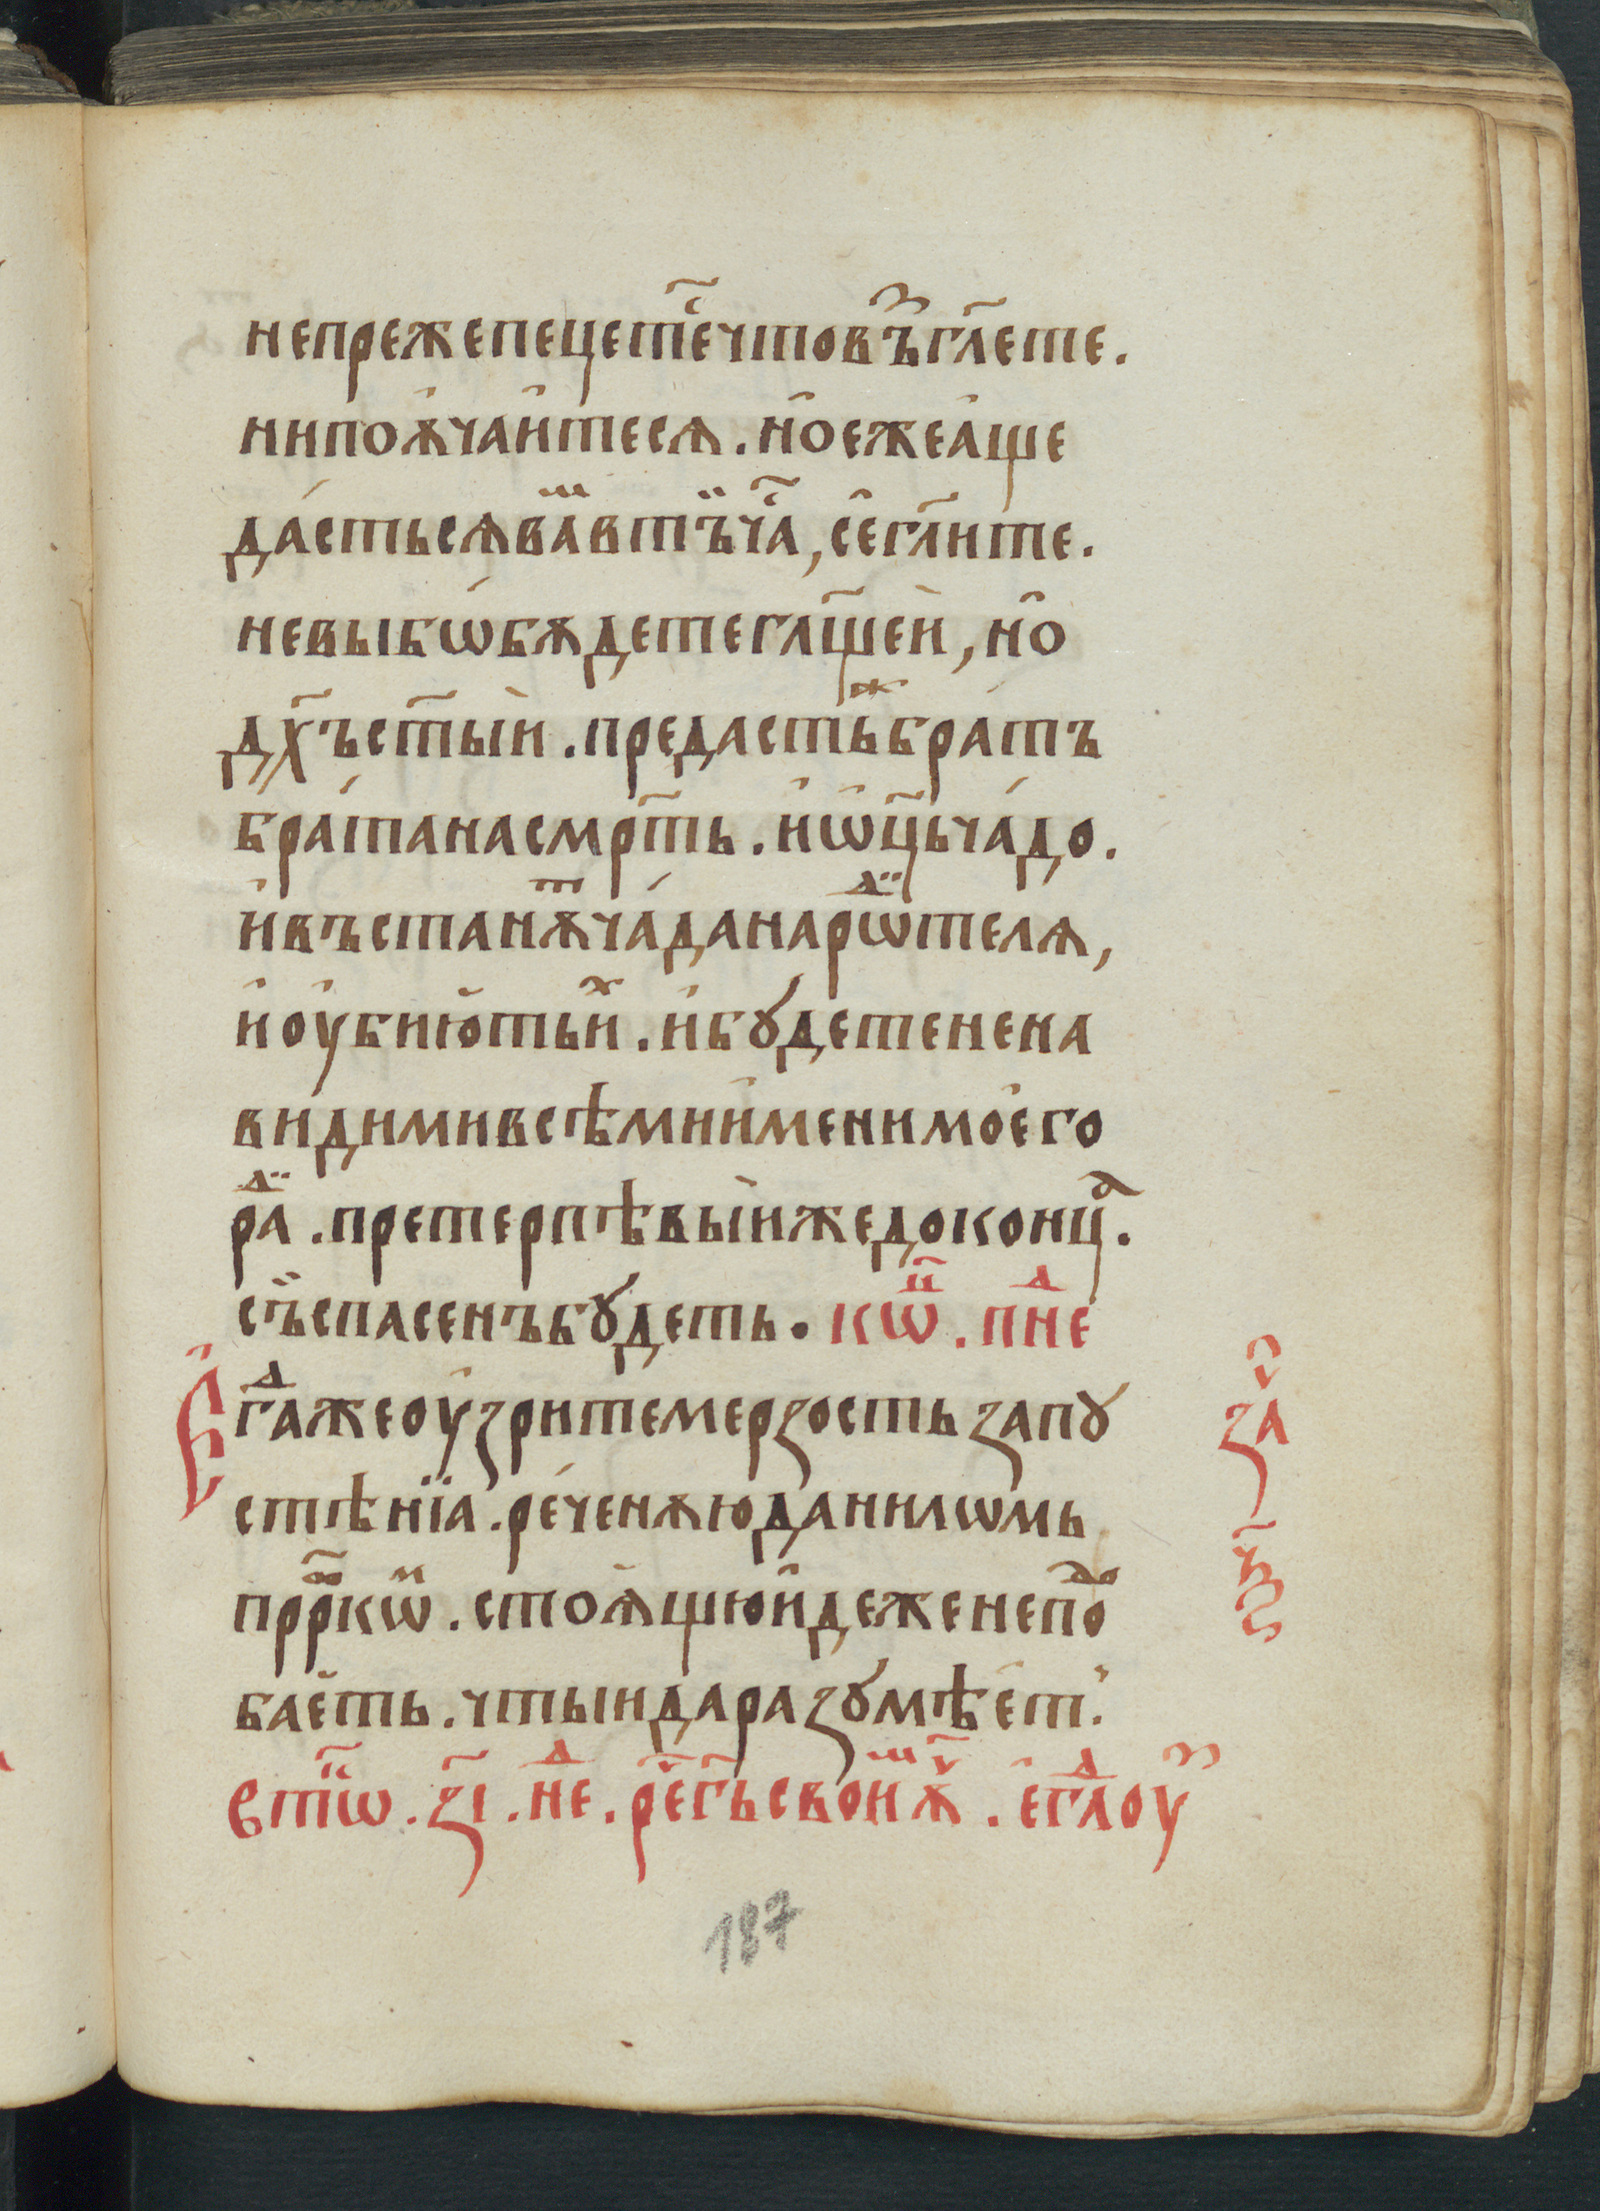 не преже пецетеⷭ҇ что въꙁгл҃ете.
ни поѫчаитесѧ. но еже аще
дастьсѧ ваⷨ в тъи чаⷭ҇, се гл҃ите.
не вы бѡ бѫдете гл҃щеи, но
дх҃ъ ст҃ыи. предастьⷤ братъ
брата на смр҃ть. и ѿц҃ь чадо.
и въстанѫⷮ чада на рѡⷣителѧ,
и оубиють иⷯ. и бꙋдете нена
видими всѣми имени моего
раⷣи. претерпѣвыи же до концⷶ.
съи спасенъ бꙋдеть. кѡⷩ. пнⷣе
Егⷣа же оузрите мерзость запꙋ
стѣнїа. реченѫю данилѡмь
прⷪ҇ркѡⷨ. стоѧщю идеже не поⷣⷪ
баеть. чтыи да разꙋмѣеть.
Втⷪ҇ѡ. зі. неⷣ. рⷱ҇е гь҃ своиⷨ ѫⷱ҇. егⷣа оуꙁ
за
нз
187